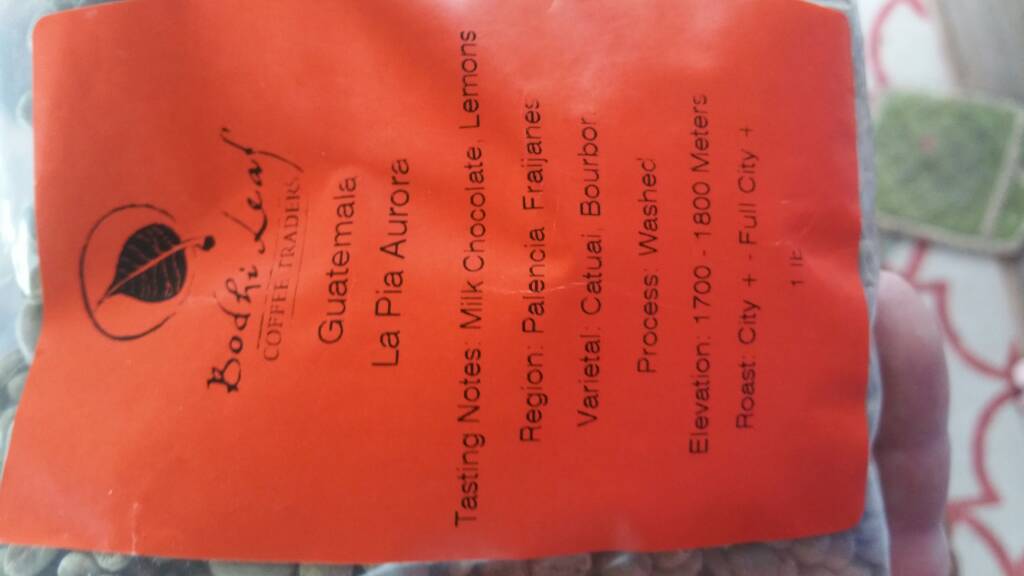 Bodhi Leaf
COFFEE TRADERS
Guatemala
La Pia Aurora
Tasting Notes: Milk Chocolate, Lemons
Region: Palencia, Fraijanes
Varietal: Catuai, Bourbon
Process: Washed
Elevation: 1700 - 1800 Meters
Roast: City + - Full City +
1 lb